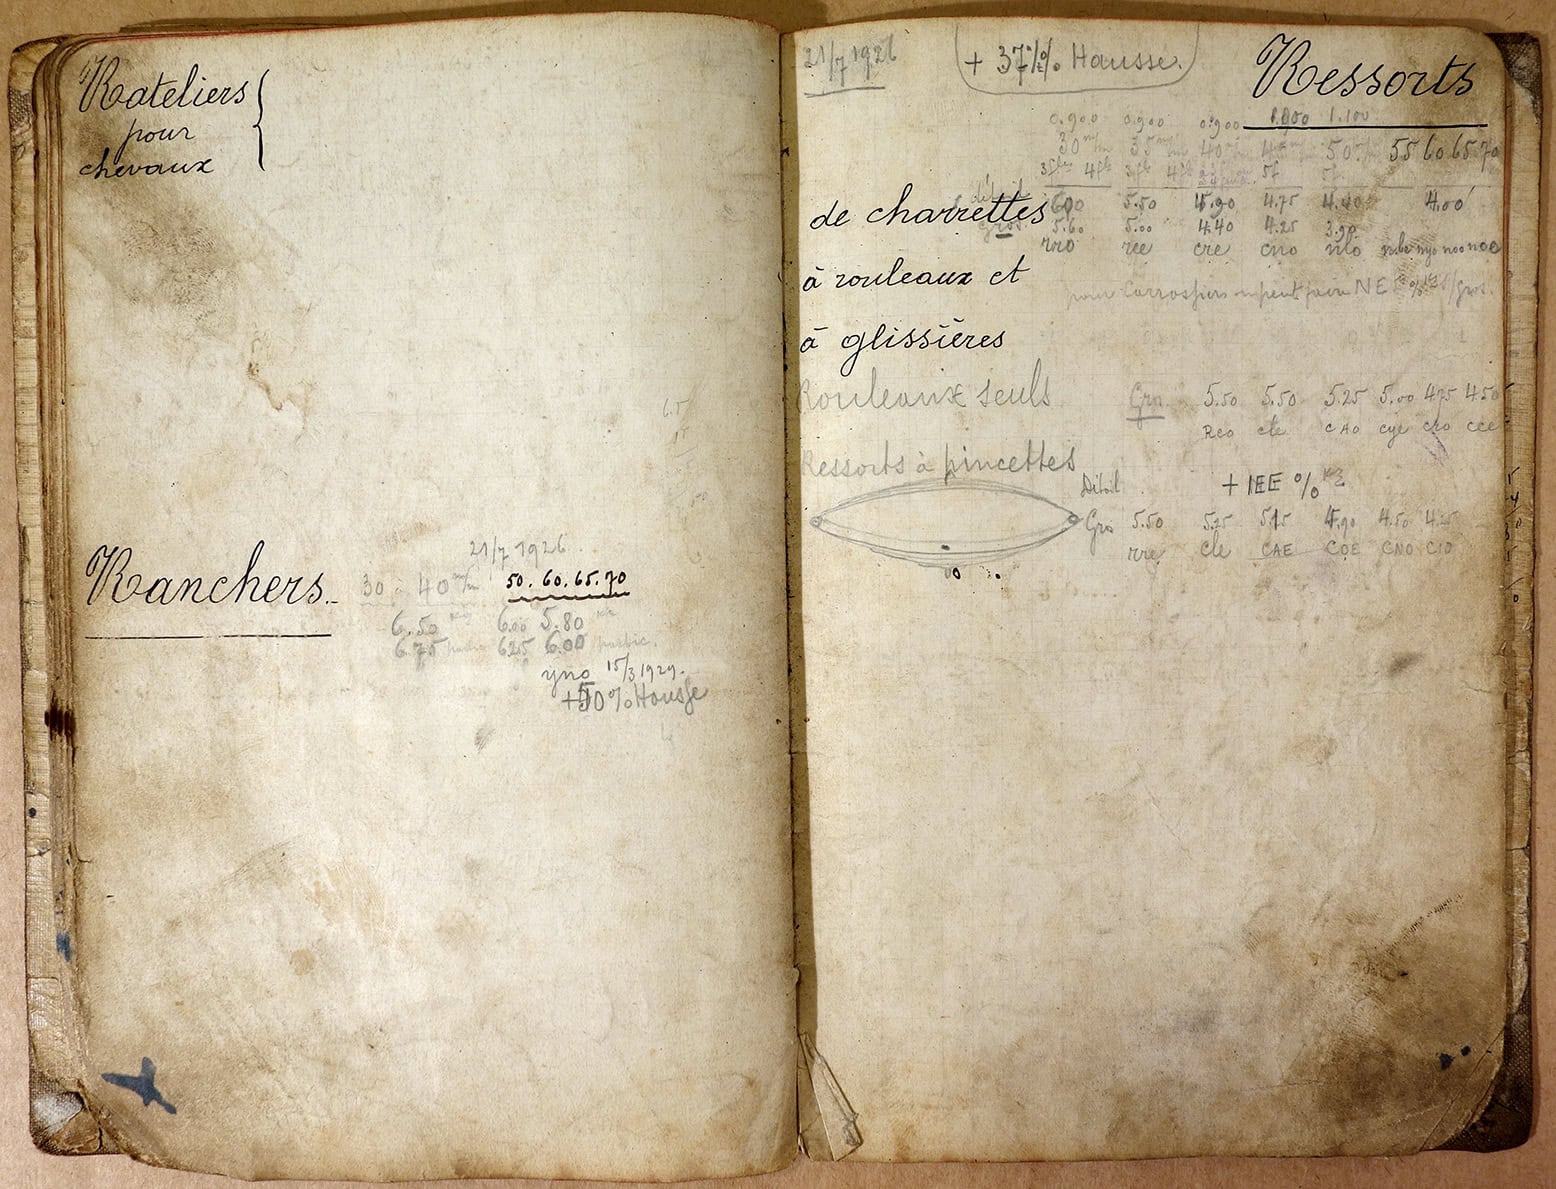 Rateliers
pour
chevaux
21/7 1926
Ranchers.
30 - 40 m/m 50. 60. 65. 70
6.50 6.00 5.80
6.75 6.25 6.00
yno 15/3 1929.
+50% Hausse
21/7 1926 + 37½% Hausse. Ressorts
0.900 0.900 0.900 1.000 1.100
30 m/m 35 m/m 40 50 55 60 65 70
de charrettes 600 5.50 4.75 4.40 4.00
gros 5.60 5.00 4.40 4.25 3.90
rro ree cre cno nlo noo noe
à rouleaux et
pour Carrossiers peut faire NEC %
à glissières
Rouleaux seuls Gros 5.50 5.50 5.25 5.00 4.75 4.50
Rco cle CAO cye cro cee
Ressorts à pincettes
Détail + IEE %
Gros 5.50 5.25 5.15 4.90 4.50 4.25
rre cle CAE COE CNO CIO